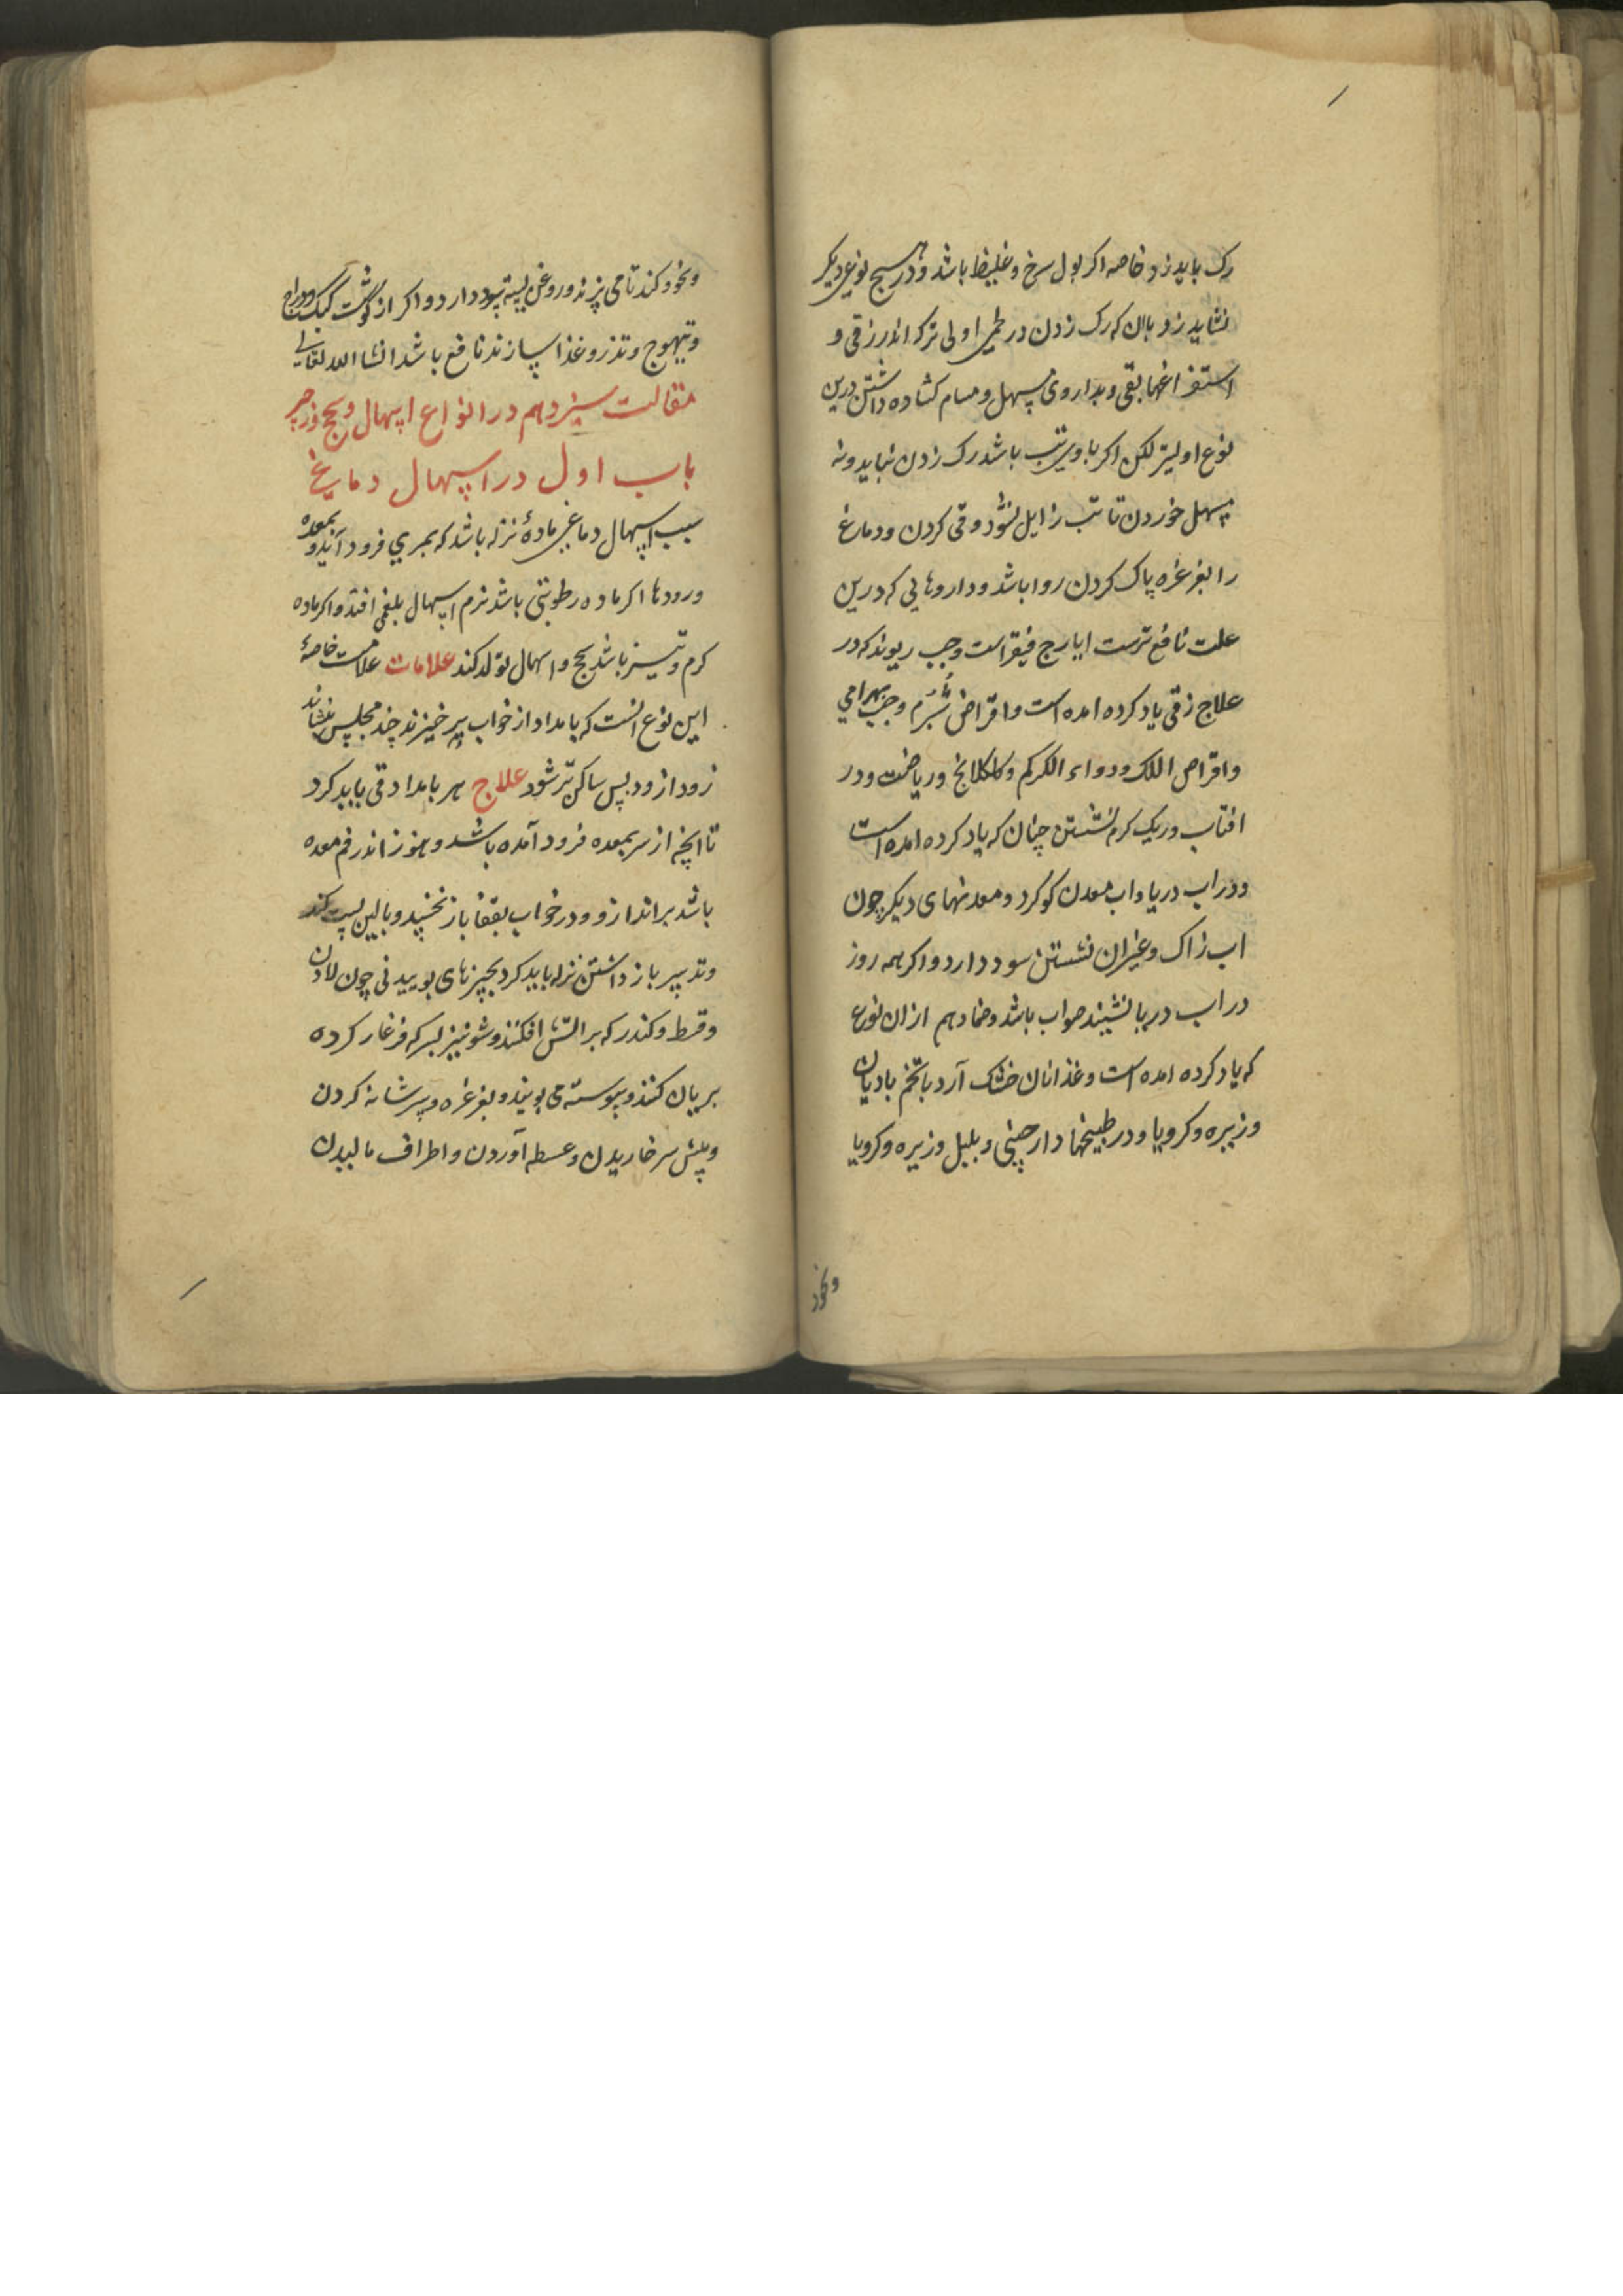 رک باید زد خاصه اکر بول سرخ و غلیظ باشد و در هیچ نوعی دیکر
نشاید زد باان که رک زدن در طمی اولی ترکه اندر زقی و
استفراغها بقی و بداروی مسهل و مسام کشاده داشتن درین
نوع اولیتر لکن اکر با وی تب باشد رک زدن نباید و نه
مسهل خوردن تا تب زایل نشود و قی کردن و دماغ
را بغرغره پاک کردن روا باشد و داروهایی که درین
علت نافع ترست ایارج فیقراست و حب ریوند که در
علاج زقی یاد کرده امده است و اقراض شبرم و حب بهرامی
و اقراص اللک و دواء الکرکم و کلکلانج و ریاضت و در
افتاب و ریک کرم نشستن چنان که یاد کرده امده است
و در اب دریا و اب معدن کوکرد و معدنهای دیکر چون
اب زاک و غیران نشستن سود دارد و اکر همه روز
در اب دریا نشیند صواب باشد و ضماد هم ازان نوع
که یاد کرده امده است و غذا نان خشک آرد با تخم بادیان
و زیره و کرویا و در طبیخها دارچینی و پلپل و زیره و کرویا
ونخود
ونخود کند تا می پزند و روغن پسته سود دارد و اکر از کوشت کبک و دراج
و تیهوج و تذرو غذا سازند نافع باشد انشا الله تعالی
مقالت سیزدهم در انواع اسهال و سحج و زحیر
باب اول در اسهال دماغی
سبب اسهال دماغی ماده نزله باشد که بمری فرود آید و بمعده
و رودها اکر ماده رطوبتی باشد نرم اسهال بلغمی افتد و اکر ماده
کرم و تیز باشد سحج و اسهال تولد کند علامات علامت خاصهٔ
این نوع انست که بامداد از خواب برخیزند چند مجلس بنشاند
زود از زود پس ساکن تر شود علاج هر بامداد قی باید کرد
تا انچه از سر بمعده فرود آمده باشد و هنوز اندر فم معده
باشد براندازد و در خواب بقفا باز نخسپد و بالین پست کند
و تدبیر باز داشتن نزله باید کرد بچیزهای بوییدنی چون لادن
و قسط و کندر که بر اتش افکنند و شونیز بسرکه فرغار کرده
بریان کنند و پیوسته می بویند و بغرغره و بسر شانه کردن
و پیش سر خاریدن و عسطه آوردن و اطراف مالیدن